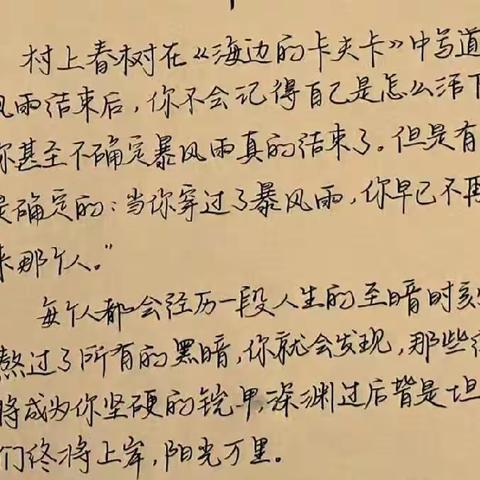 村上春树在《海边的卡夫卡》中写道
风雨结束后，你不会记得自己是怎么活下
你甚至不确定暴风雨真的结束了。但是有
是确定的：当你穿过了暴风雨，你早已不再
来那个人。”
每个人都会经历一段人生的至暗时刻
熬过了所有的黑暗，你就会发现，那些
将成为你坚硬的铠甲，深渊过后皆是坦
们终将上岸，阳光万里。